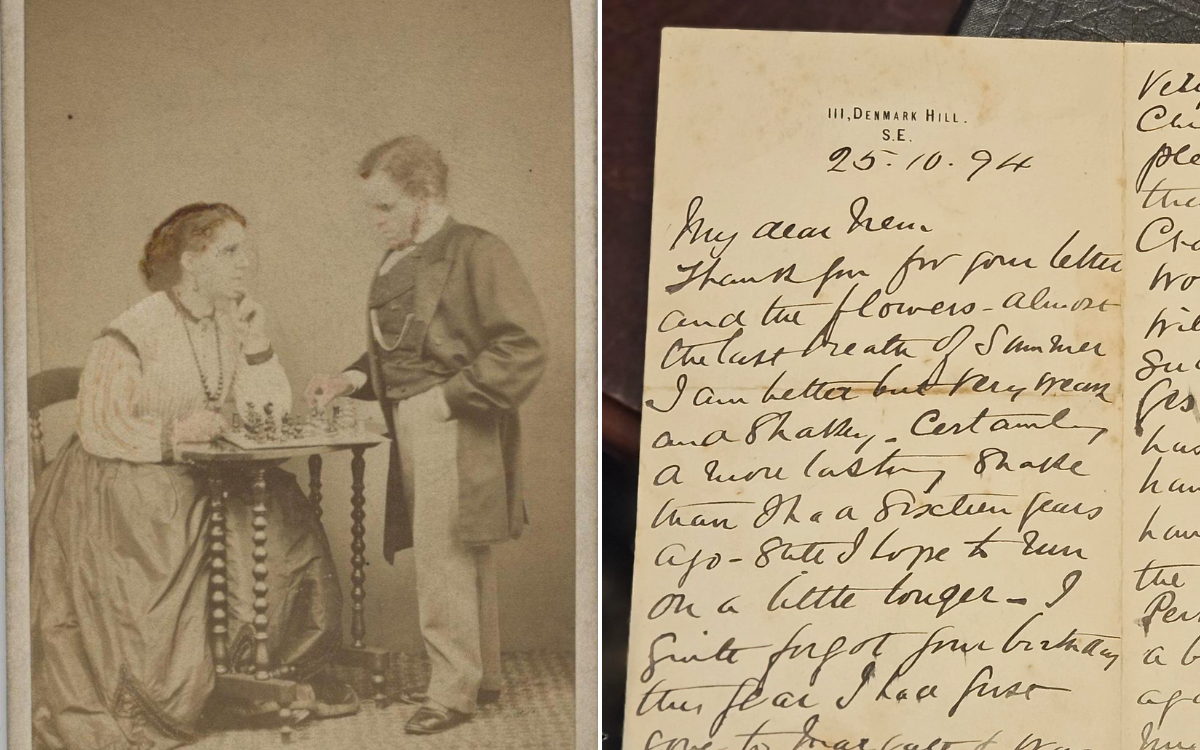 111, DENMARK HILL.
S.E.
25.10.94
My dear
Thank you for your letter
and the flowers - almost
the last breath of Summer
I am better but very weak
and Shaky - Certainly
a more lasting Shake
than I had Sixteen years
ago - Still I hope to run
on a little longer - I
quite forgot your birthday
this year I had just
gone to
Very
ple
the
wo
has
the
a b
ago